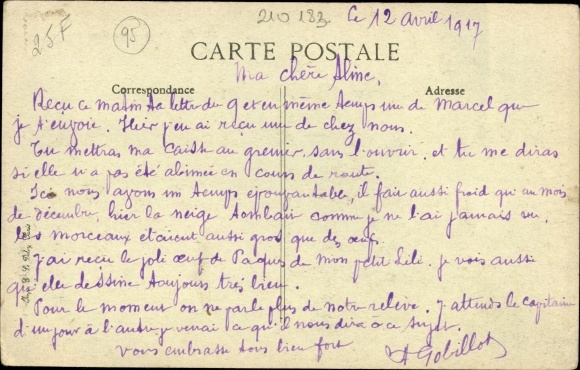 210 183
Le 12 Avril 1917
25F
95
CARTE POSTALE
Ma chère Aline,
Correspondance
Adresse
Reçu ce matin ta lettre du 9 et en même temps une de Marcel que
je t'envoie. Hier j'en ai reçu une de chez nous.
Tu mettras ma caisse au grenier, sans l'ouvrir, et tu me diras
si elle n'a pas été abîmée en cours de route.
Ici nous avons un temps épouvantable, il fait aussi froid qu'au mois
de décembre, hier la neige tombait comme je ne l'ai jamais vu.
Les morceaux étaient aussi gros que des œufs.
J'ai reçu le joli œuf de Pâques de mon petit Lili. je vois aussi
qu'elle dessine toujours très bien.
Pour le moment on ne parle plus de notre relève. J'attends le capitaine
d'un jour à l'autre, je verrai ce qu'il nous dira à ce sujet.
Vous embrasse tous bien fort
Gobillot